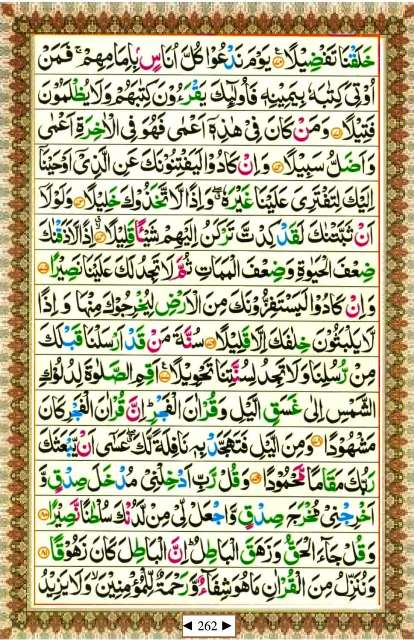 خَلَقْنَا تَفْضِيْلًا ۞ يَوْمَ نَدْعُوْا كُلَّ اُنَاسٍۢ بِاِمَامِهِمْ ۚ فَمَنْ
اُوْتِيَ كِتٰبَهٗ بِيَمِيْنِهٖ فَاُولٰٓئِكَ يَقْرَءُوْنَ كِتٰبَهُمْ وَلَا يُظْلَمُوْنَ
فَتِيْلًا ۞ وَمَنْ كَانَ فِيْ هٰذِهٖٓ اَعْمٰى فَهُوَ فِي الْاٰخِرَةِ اَعْمٰى
وَاَضَلُّ سَبِيْلًا ۞ وَاِنْ كَادُوْا لَيَفْتِنُوْنَكَ عَنِ الَّذِيْٓ اَوْحَيْنَآ
اِلَيْكَ لِتَفْتَرِيَ عَلَيْنَا غَيْرَهٗ ۖ وَاِذًا لَّاتَّخَذُوْكَ خَلِيْلًا ۞ وَلَوْلَآ
اَنْ ثَبَّتْنٰكَ لَقَدْ كِدْتَّ تَرْكَنُ اِلَيْهِمْ شَيْـًٔا قَلِيْلًا ۞ اِذًا لَّاَذَقْنٰكَ
ضِعْفَ الْحَيٰوةِ وَضِعْفَ الْمَمَاتِ ثُمَّ لَا تَجِدُ لَكَ عَلَيْنَا نَصِيْرًا ۞
وَاِنْ كَادُوْا لَيَسْتَفِزُّوْنَكَ مِنَ الْاَرْضِ لِيُخْرِجُوْكَ مِنْهَا وَاِذًا
لَّا يَلْبَثُوْنَ خِلٰفَكَ اِلَّا قَلِيْلًا ۞ سُنَّةَ مَنْ قَدْ اَرْسَلْنَا قَبْلَكَ
مِنْ رُّسُلِنَا وَلَا تَجِدُ لِسُنَّتِنَا تَحْوِيْلًا ۞ اَقِمِ الصَّلٰوةَ لِدُلُوْكِ
الشَّمْسِ اِلٰى غَسَقِ الَّيْلِ وَقُرْاٰنَ الْفَجْرِ ۭ اِنَّ قُرْاٰنَ الْفَجْرِ كَانَ
مَشْهُوْدًا ۞ وَمِنَ الَّيْلِ فَتَهَجَّدْ بِهٖ نَافِلَةً لَّكَ ۖ عَسٰٓى اَنْ يَّبْعَثَكَ
رَبُّكَ مَقَامًا مَّحْمُوْدًا ۞ وَقُلْ رَّبِّ اَدْخِلْنِيْ مُدْخَلَ صِدْقٍ وَّ
اَخْرِجْنِيْ مُخْرَجَ صِدْقٍ وَّاجْعَلْ لِّيْ مِنْ لَّدُنْكَ سُلْطٰنًا نَّصِيْرًا ۞
وَقُلْ جَآءَ الْحَقُّ وَزَهَقَ الْبَاطِلُ ۭ اِنَّ الْبَاطِلَ كَانَ زَهُوْقًا ۞
وَنُنَزِّلُ مِنَ الْقُرْاٰنِ مَا هُوَ شِفَآءٌ وَّرَحْمَةٌ لِّلْمُؤْمِنِيْنَ ۙ وَلَا يَزِيْدُ
◄ 262 ►